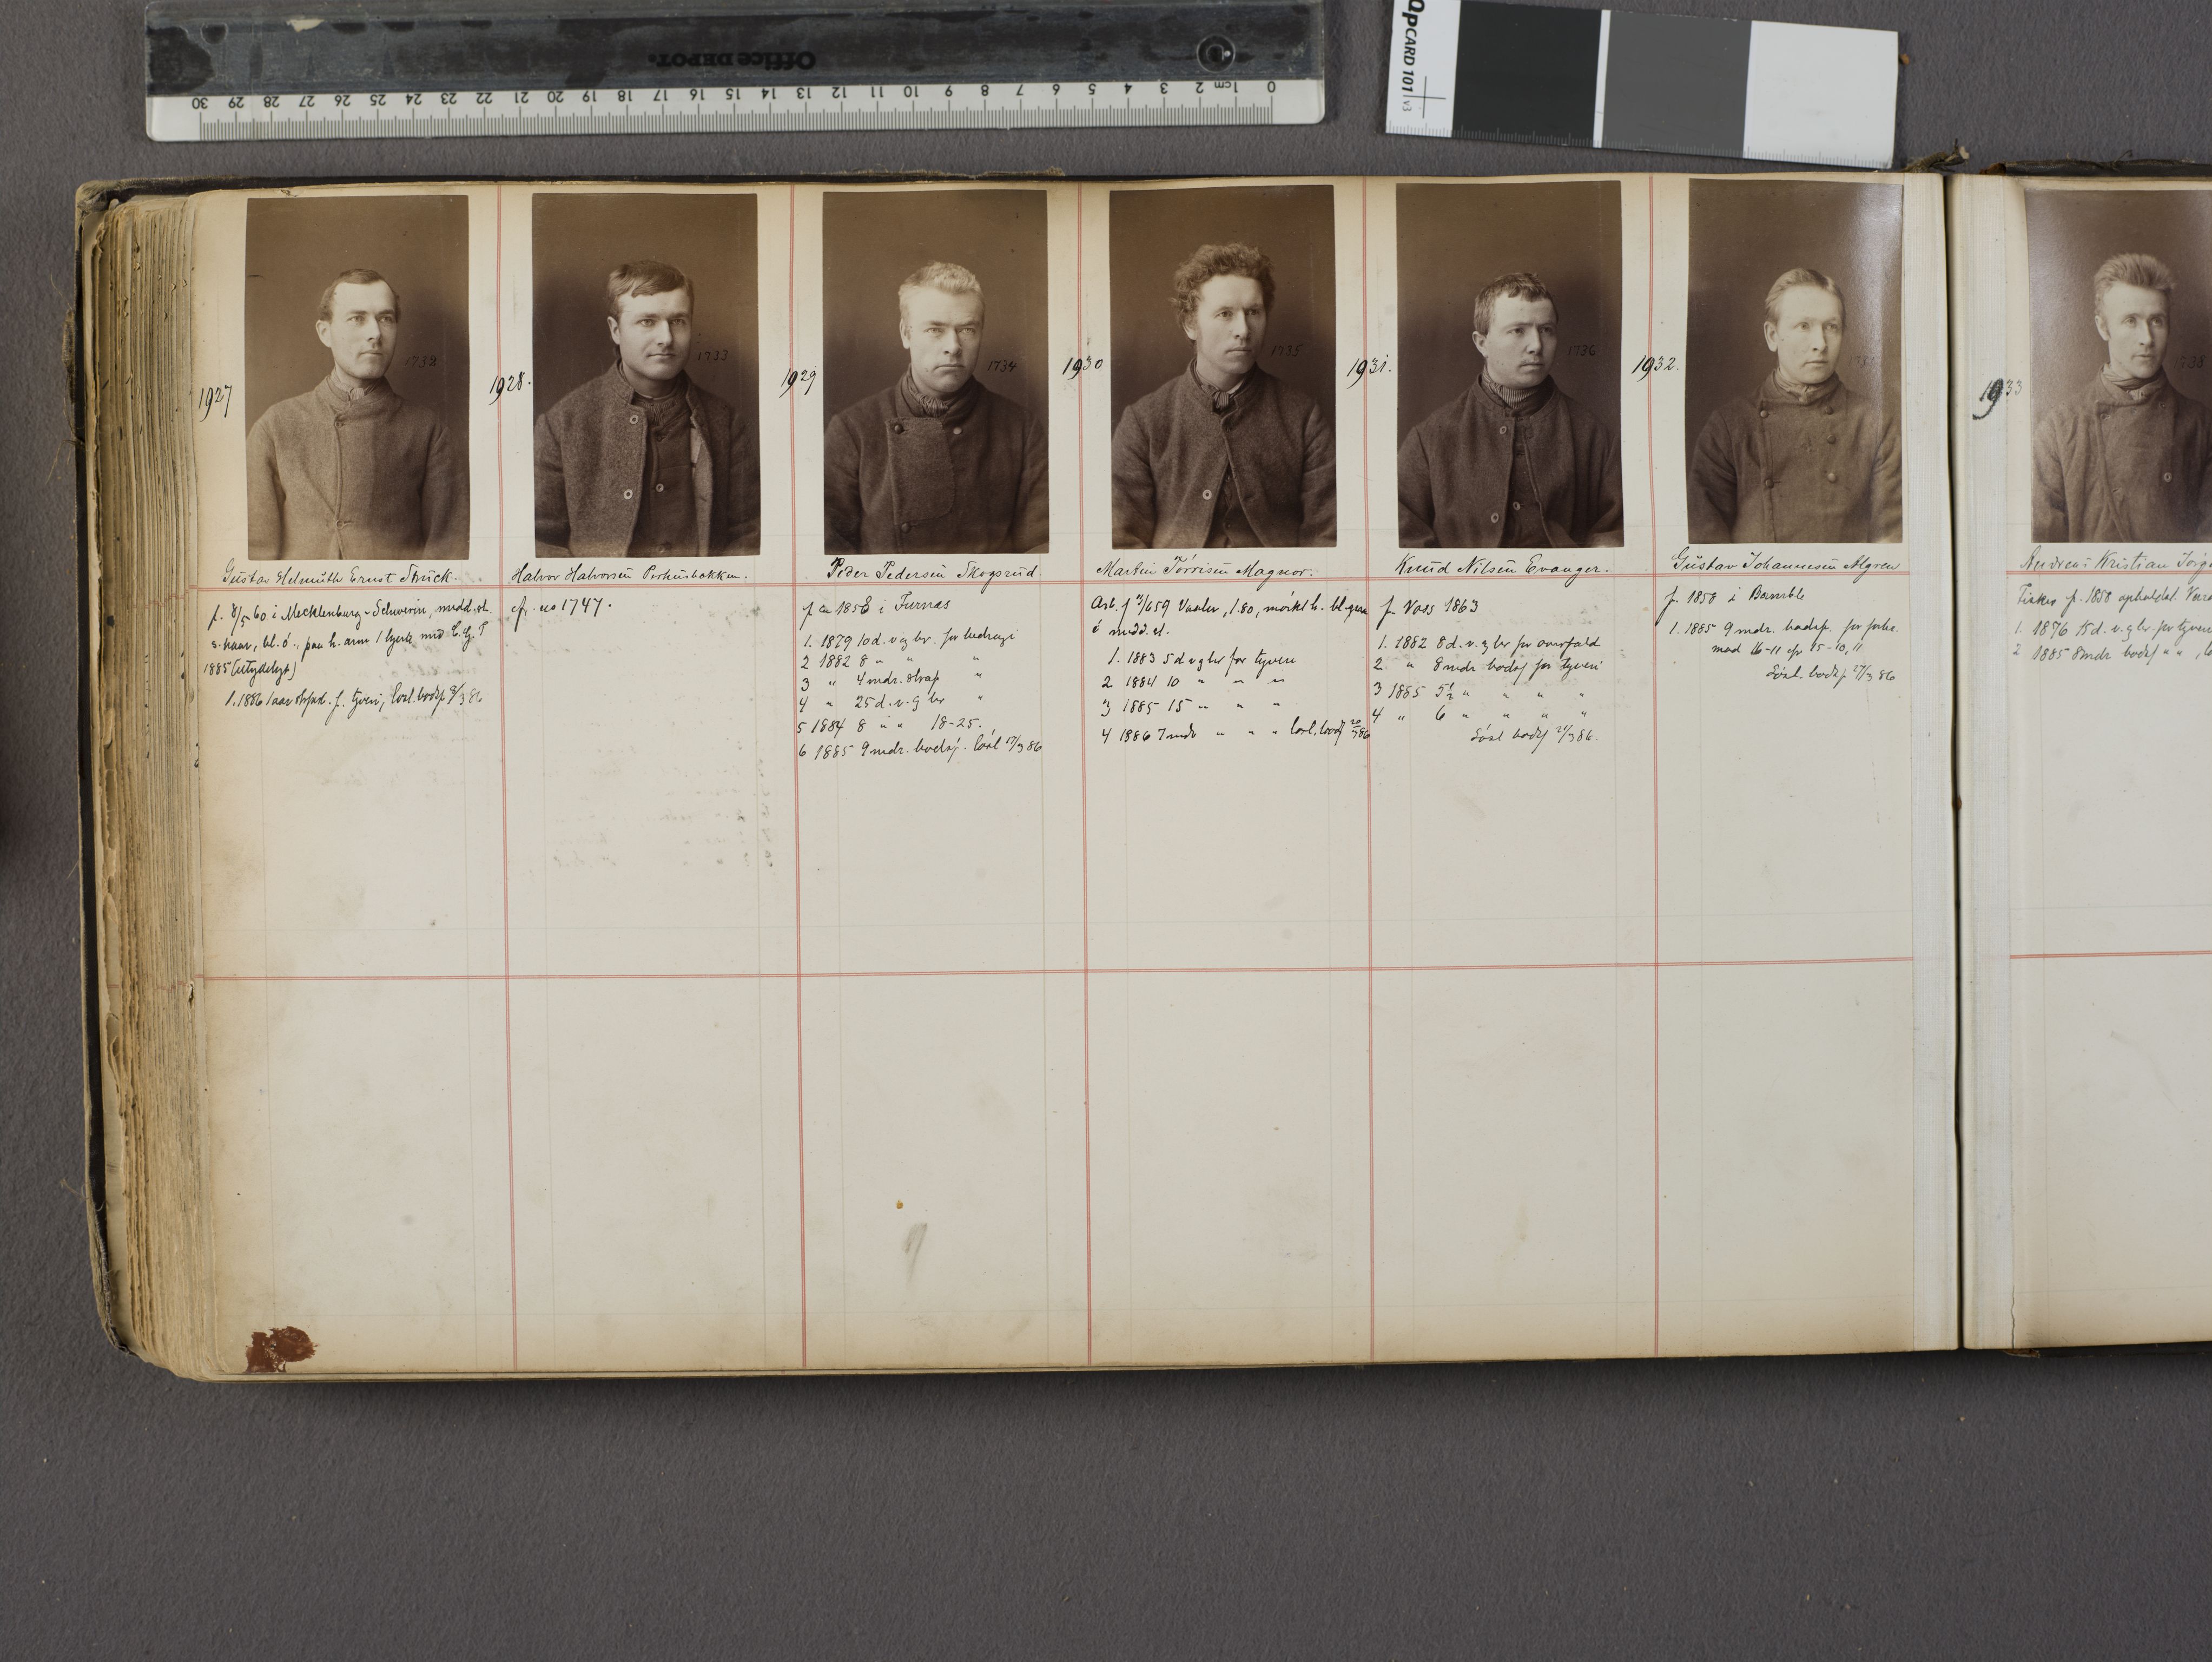 Office DEPOT.
30 29 28 27 26 25 24 23 22 21 20 19 18 17 16 15 14 13 12 11 10 9 8 7 6 5 4 3 2 1cm 0
QPCARD 101 v3
1927
1732
Gustav Helmuth Ernst Struck.
f. 8/5 60 i Mecklenburg-Schwerin, midd. st.
haar, bl. ö., paa h. arm 1 hjerte med
1885 (utydeligt)
1. 1886 1 aar f. tyveri, bodsf 8/3 86
1928.
1733
Halvor Halvorsen Perhusbakken.
cfr. no 1747.
1929
1734
Peder Pedersen Skogsrud.
f ca 1858 i Furnæs
1. 1879 10 d. v og br. for bedrageri
2 1882 8 " " "
3 " 4 mdr. straf "
4 " 25 d. v. og br "
5 1884 8 " " 18-25.
6 1885 9 mdr. bodsf. lösl 17/3 86
1930
1735
Martin Torrisen Magnor.
Arb. f 659 Vaaler, 1.80, mörkt h. bl. graa
ö midd. st.
1. 1883 5 d v og br for tyveri
2 1884 10 " " "
3 1885 15 " " "
4 1886 7 mdr " " " lösl. bodsf 20/3 86
1931.
1736
Knud Nilsen Evanger.
f. Voss 1863
1. 1882 8 d. v. og br for overfald
2 " 8 mdr bodsf for tyveri
3 1885 5½ " " " "
4 " 6 " " " "
Lösl bodsf 86.
1932.
Gustav Johannesen Algren
f. 1858 i Bamble
1. 1885 9 mdr. bodsf. for
mod 16-11 cfr 15-10, 11
Lösl. bodsf. 27/3 86
1933
1738
Andreas Kristian
Fisker f. 1858 opholdst.
1. 1876 15 d. v. og br. for tyveri
2 1885 8 mdr bodsf " "